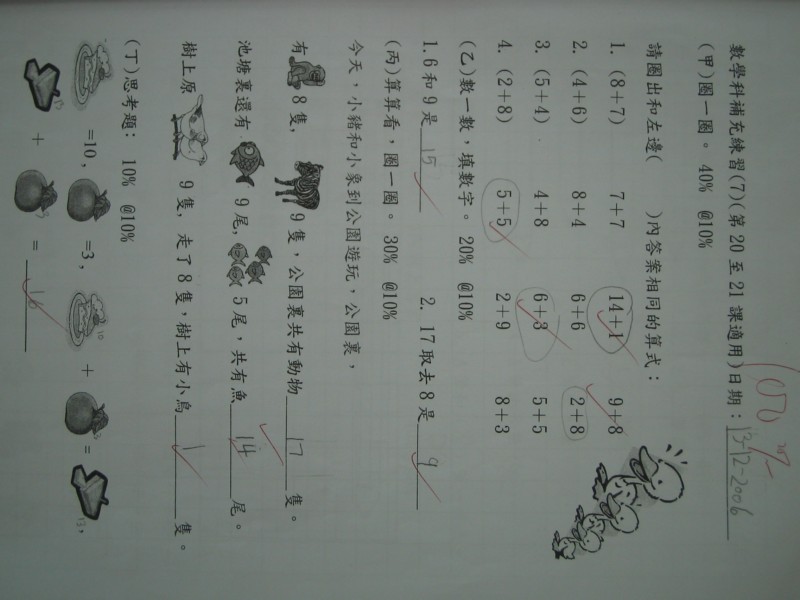 數學科補充練習(7)(第 20 至 21 課適用)日期：13-12-2006
(甲)圈一圈。 40% @10%
請圈出和左邊( )內答案相同的算式：
1. (8+7) 7+7 14+1 9+8
2. (4+6) 8+4 6+6 2+8
3. (5+4) 4+8 6+3 5+5
4. (2+8) 5+5 2+9 8+3
(乙)數一數，填數字。 20% @10%
1. 6 和 9 是 15 2. 17 取去 8 是 9
(丙)算算看，圈一圈。 30% @10%
今天，小豬和小象到公園遊玩，公園裏，
有 8 隻， 9 隻，公園裏共有動物 17 隻。
池塘裏還有 9 尾， 5 尾，共有魚 14 尾。
樹上原 9 隻，走了 8 隻，樹上有小鳥 1 隻。
(丁)思考題： 10% @10%
=10， =3， 10 + = 13，
13 + 3 = 16